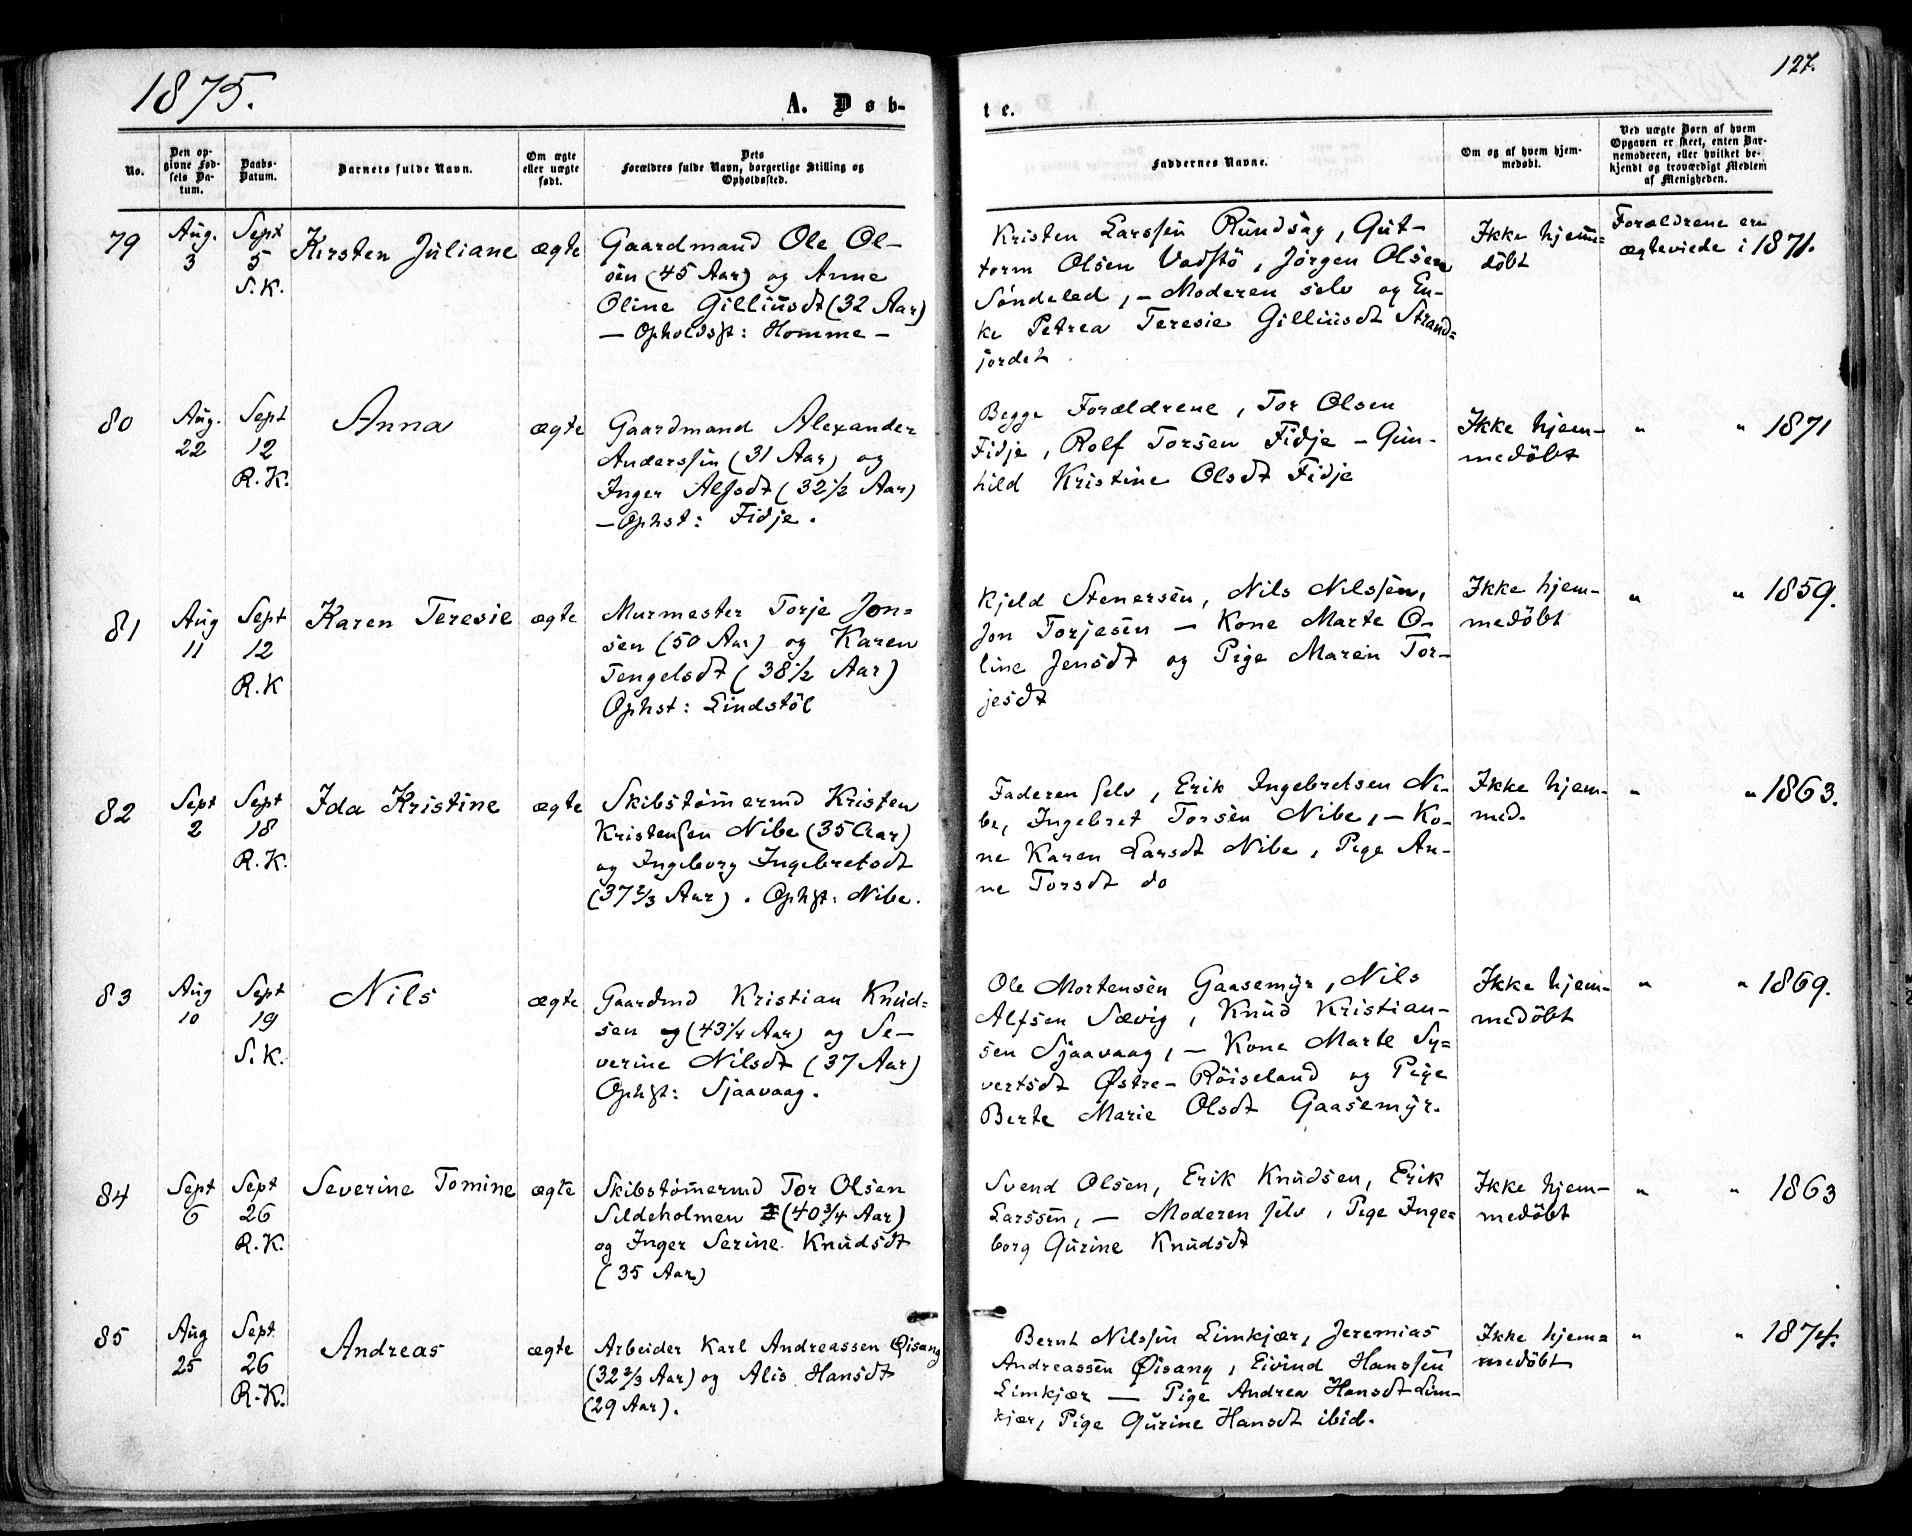 1875.
A. Døb-
te.
127.
No.
Den op-
givne Fød-
sels Da-
tum.
Daabs-
Datum.
Barnets fulde Navn.
Om ægte
eller uægte
født.
Dets
Forældres fulde Navn, borgerlige Stilling og
Opholdssted.
Faddernes Navne.
Om og af hvem hjem-
medøbt.
Ved uægte Børn af hvem
Opgaven er skeet, enten Bar-
nemoderen, eller hvilket be-
kjendt og troværdigt Medlem
af Menigheden.
79
Aug.
3
Sept
5
S.K.
Kirsten Juliane
ægte
Gaardmand Ole Ol-
sen (45 Aar) og Anne
Oline Gilliusdt (32 Aar)
— Opholdsst: Homme —
Kristen Larssen Rundsag, Gut-
torm Olsen Vadstö, Jörgen Olsen
Söndeled, — Moderen selv og En-
ke Petrea Teresie Gilliusdt Strand=
jordet
Ikke hjem=
döbt
Forældrene ere
ægteviede i 1871.
80
Aug.
22
Sept
12
R.K.
Anna
ægte
Gaardmand Alexander
Anderssen (31 Aar) og
Inger Alfsdt (32 1/2 Aar)
— Ophst: Fidje.
Begge Forældrene, Tor Olsen
Fidje, Rolf Torsen Fidje — Gun-
hild Kristine Olsdt Fidje
Ikke hjem-
medöbt
" " 1871
81
Aug
11
Sept
12
R.K
Karen Teresie
ægte
Murmester Torje Jon=
sen (50 Aar) og Karen
Tengelsdt (38 1/2 Aar)
Ophst: Lindstöl
Kjeld Stenersen, Nils Nilssen,
Jon Torjesen — Kone Marte O-
line Jensdt og Pige Maren Tor-
jesdt
Ikke hjem-
medöbt
" " 1859.
82
Sept
2
Sept
18
R.K.
Ida Kristine
ægte
Skibstömermd Kristen
Kristensen Nibe (35 Aar)
og Ingeborg Ingebretsdt
(37 2/3 Aar). Ophst: Nibe.
Faderen selv, Erik Ingebretsen Ni-
be, Ingebret Torsen Nibe, — Ko-
ne Karen Larsdt Nibe, Pige An-
ne Torsdt do
Ikke hjem-
med.
" " 1863.
83
Aug
10
Sept
19
S.K.
Nils
ægte
Gaardmd Kristian Knud=
sen og (43 1/4 Aar) og Se-
verine Nilsdt (37 Aar)
Ophst: Sjaavaag.
Ole Mortensen Gaasemyr, Nils
Alfsen Sævig, Knud Kristian-
sen Sjaavaag, — Kone Marte Sy=
vertsdt Østre-Röiseland og Pige
Berte Marie Olsdt Gaasemyr.
Ikke hjem-
medöbt
" " 1869.
84
Sept
6
Sept
26
R.K.
Severine Tomine
ægte
Skibstömermd Tor Olsen
Sildeholmen (40 3/4 Aar)
og Inger Serine Knudsdt
(35 Aar)
Svend Olsen, Erik Knudsen, Erik
Larssen, — Moderen selv, Pige Inge=
borg Gurine Knudsdt
Ikke hjem-
medöbt
" " 1863
85
Aug
25
Sept
26
R.K.
Andreas
ægte
Arbeider Karl Andreassen Øisang
(32 2/3 Aar) og Alis Hansdt
(29 Aar).
Bernt Nilssen Limkjær, Jeremias
Andreassen Øisang, Eivind Hanssen
Limkjær — Pige Andrea Hansdt Lim-
kjær, Pige Gurine Hansdt ibid.
Ikke hjem=
medöbt
" " 1874.